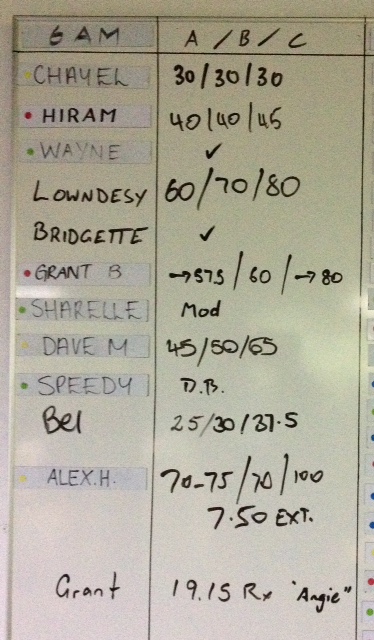 6 AM A / B / C
CHAYEL 30/30/30
HIRAM 40/40/45
WAYNE ✓
LOWNDESY 60/70/80
BRIDGETTE ✓
GRANT B →57.5 / 60 / →80
SHARELLE Mod
DAVE M 45/50/65
SPEEDY D.B.
Bel 25/30/37.5
ALEX.H. 70-75/70/100
7.50 EXT.
Grant 19.15 Rx "Angie"